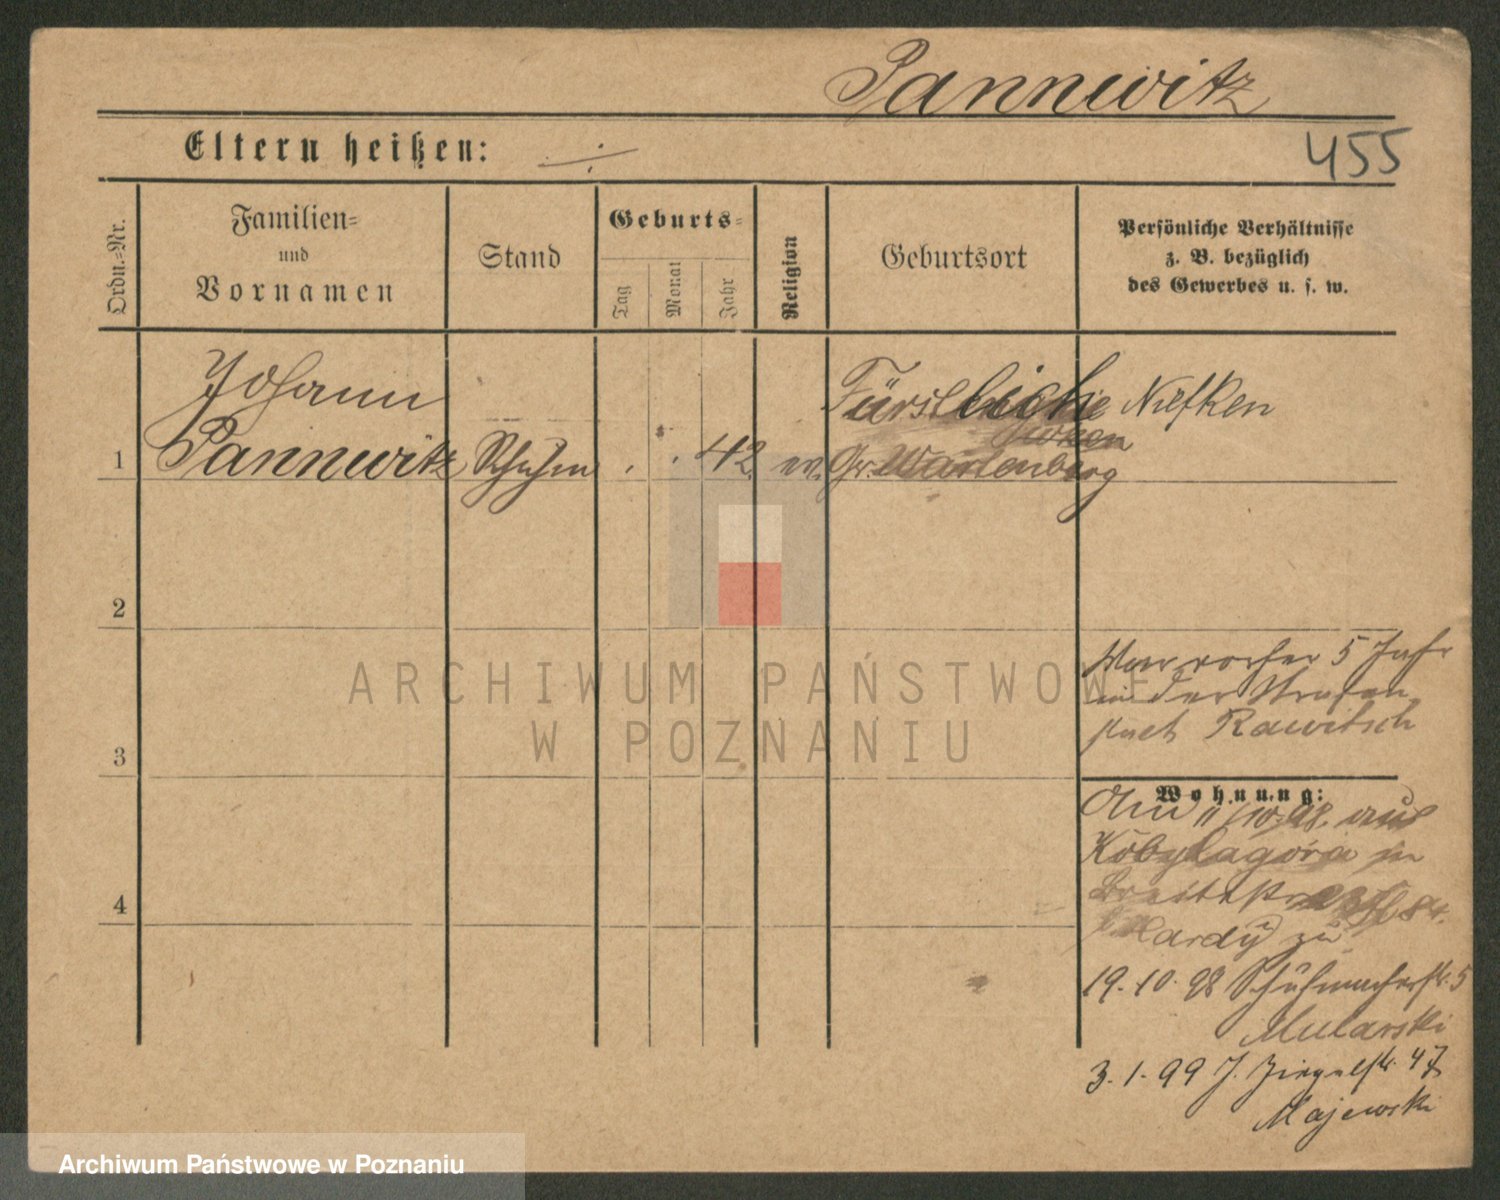 Pannwitz
455
Eltern heißen: ·/·
Ordn.=Nr.
Familien=
und
Vornamen
Stand
Geburts=
Tag
Monat
Jahr
Religion
Geburtsort
Persönliche Verhältnisse
z. B. bezüglich
des Gewerbes u. s. w.
Johann
Fürstlich Niefken
1 Pannwitz Schuhm . . 42. ev. Gr. Wartenberg
2
War vorher 5 Jahr
in der Strafan
stalt Rawitsch
3
Wohnung:
Am 11/10. 98. aus
Kobylagora in
4
Hardy zu
19. 10. 98 Schuhmacherstr. 5
Mularski
3. 1. 99 J. Ziegelstr. 47
Majewski
ARCHIWUM PAŃSTWOWE
W POZNANIU
Archiwum Państwowe w Poznaniu